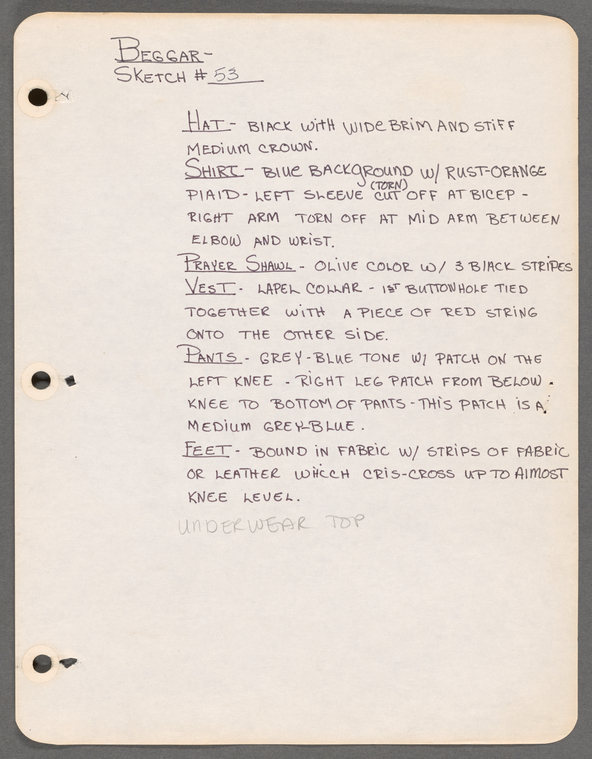 BEGGAR-
SKETCH # 53
HAT - BLACK WITH WIDE BRIM AND STIFF
MEDIUM CROWN.
SHIRT - BLUE BACKGROUND W/ RUST-ORANGE
PLAID - LEFT SLEEVE CUT (TORN) OFF AT BICEP -
RIGHT ARM TORN OFF AT MID ARM BETWEEN
ELBOW AND WRIST.
PRAYER SHAWL - OLIVE COLOR W/ 3 BLACK STRIPES
VEST - LAPEL COLLAR - 1ST BUTTONHOLE TIED
TOGETHER WITH A PIECE OF RED STRING
ONTO THE OTHER SIDE.
PANTS - GREY-BLUE TONE W/ PATCH ON THE
LEFT KNEE - RIGHT LEG PATCH FROM BELOW
KNEE TO BOTTOM OF PANTS - THIS PATCH IS A
MEDIUM GREY-BLUE.
FEET - BOUND IN FABRIC W/ STRIPS OF FABRIC
OR LEATHER WHICH CRIS-CROSS UP TO ALMOST
KNEE LEVEL.
UNDERWEAR TOP